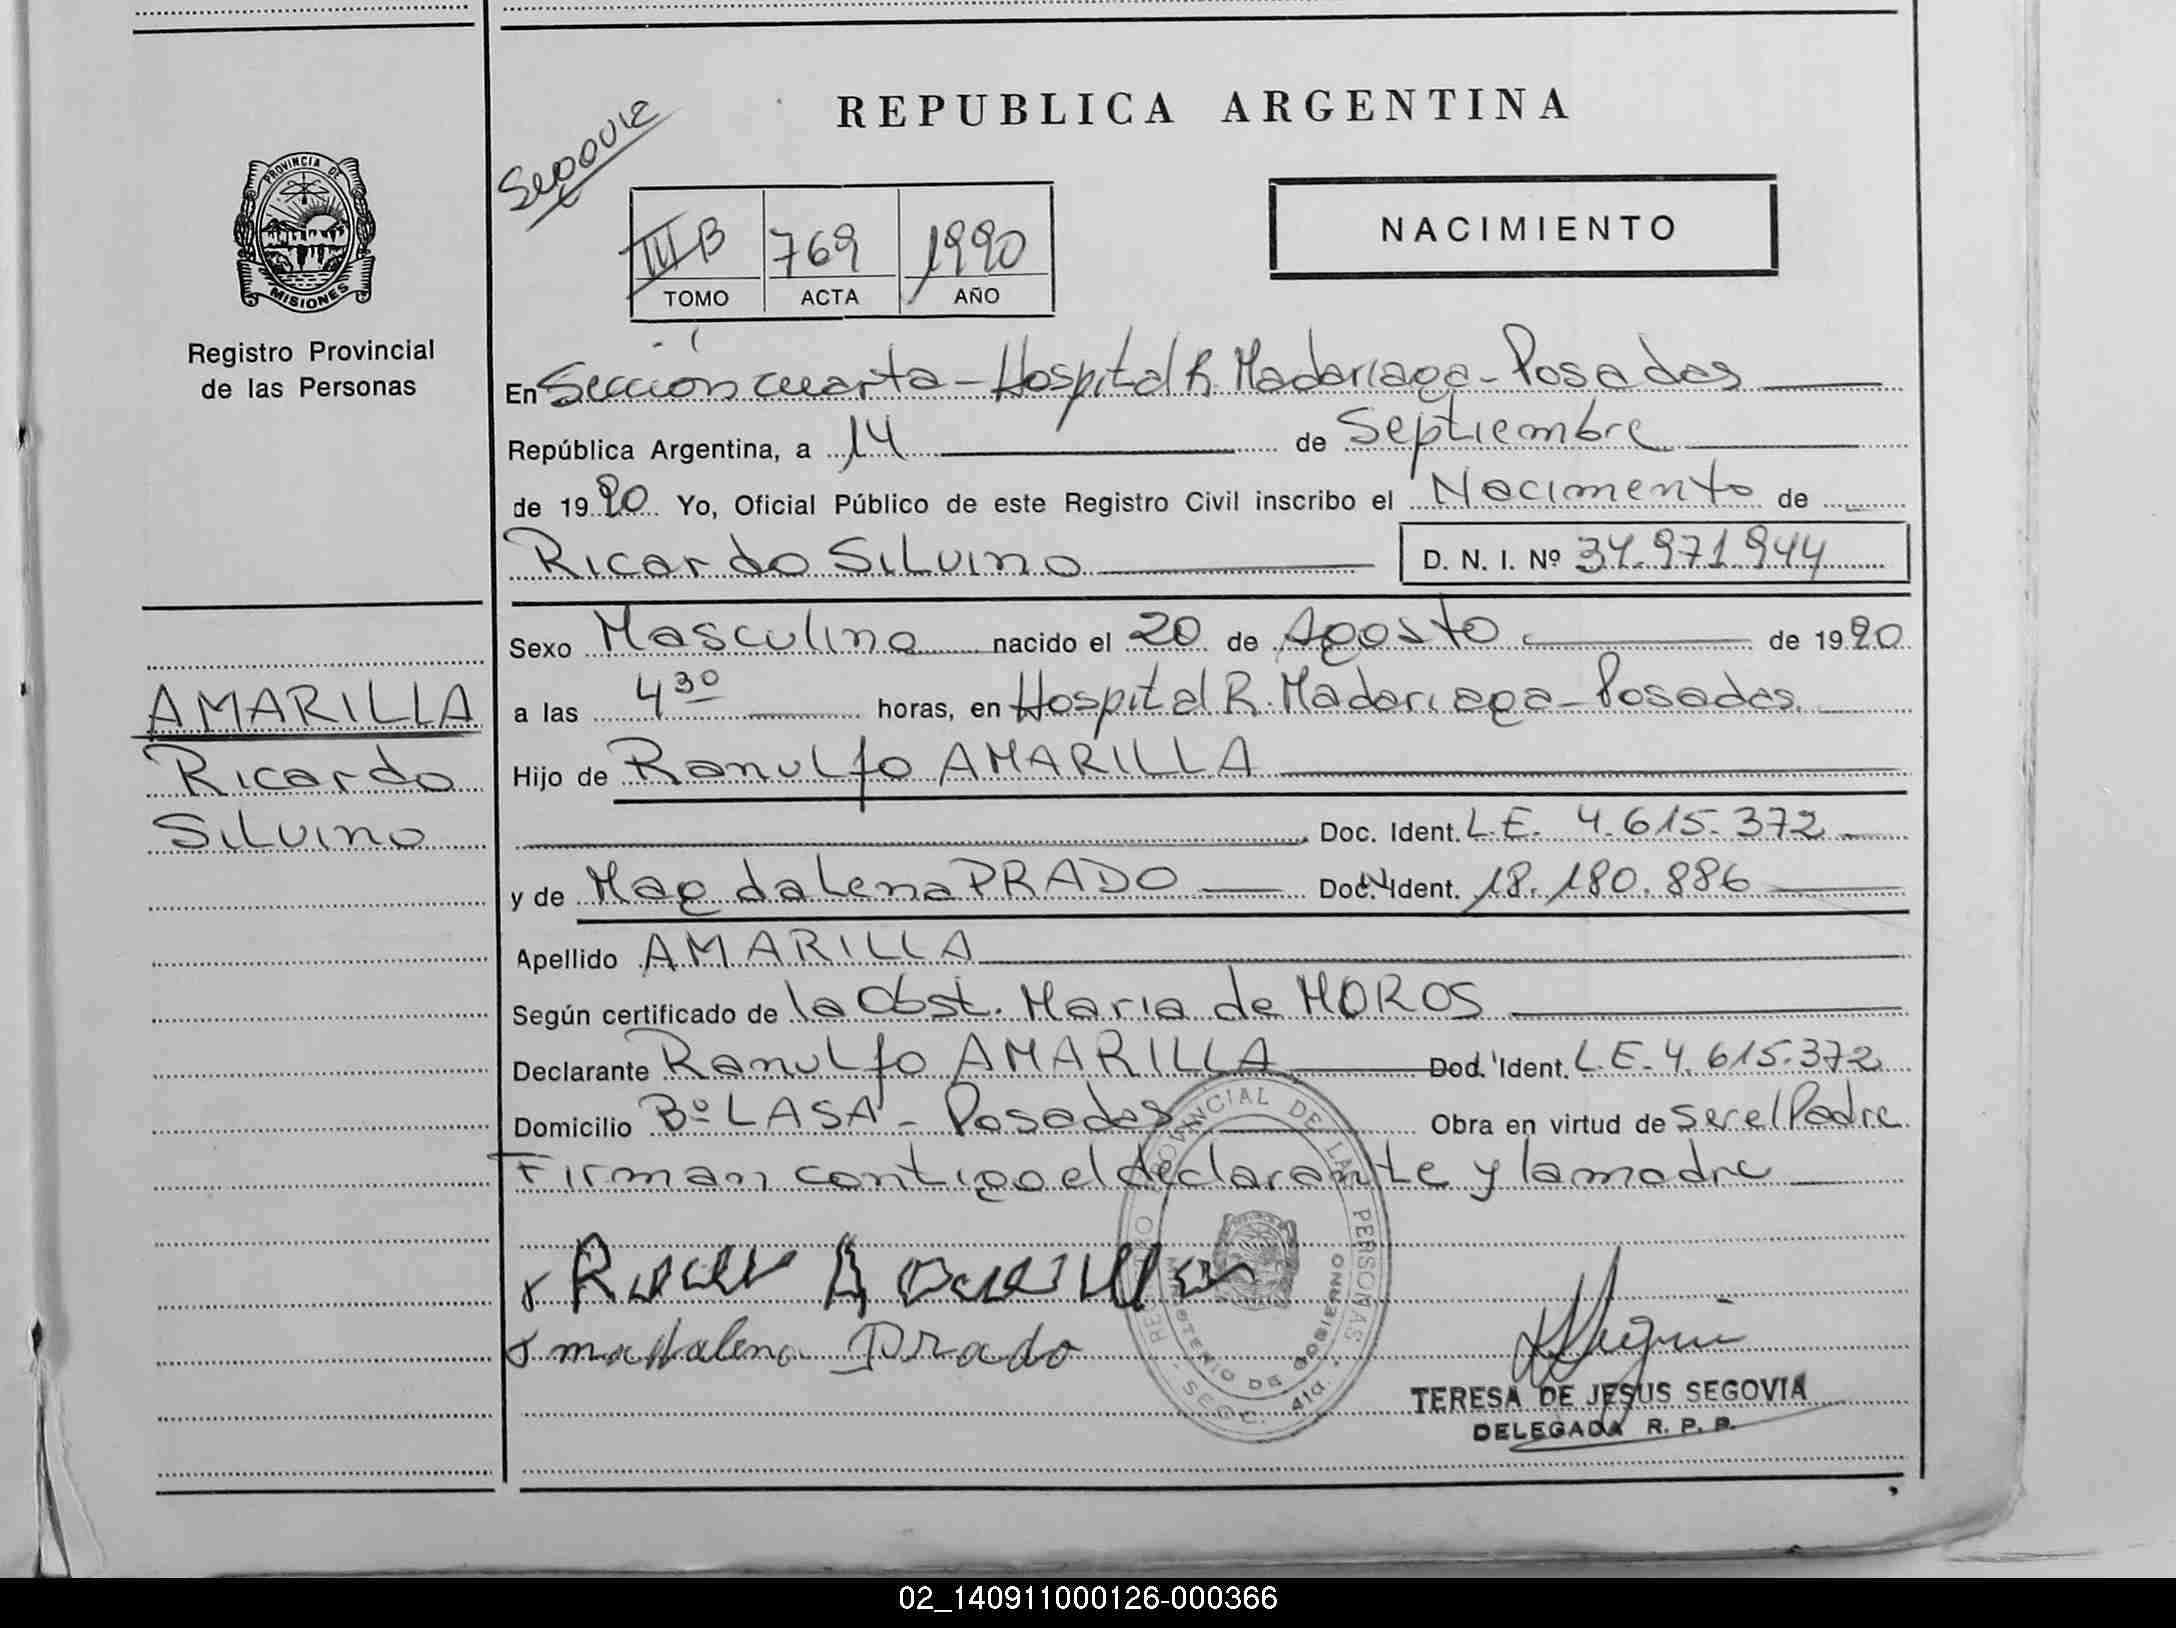 REPUBLICA ARGENTINA
PROVINCIA DE
MISIONES
Registro Provincial
de las Personas
III B 769 1990
TOMO ACTA AÑO
NACIMIENTO
En Sección cuarta - Hospital R. Madariaga - Posadas
República Argentina, a 14 de Septiembre
de 1990 Yo, Oficial Público de este Registro Civil inscribo el Nacimento de
Ricardo Silvino D. N. I. Nº 34.971.944
Sexo Masculino nacido el 20 de Agosto de 1990
a las 4 30 horas, en Hospital R. Madariaga - Posadas.
Hijo de Ranulfo AMARILLA
Doc. Ident. L.E. 4.615.372
y de Magdalena PRADO Doc. Ident. 18.180.886
Apellido AMARILLA
Según certificado de la Obst. Maria de MOROS
Declarante Ranulfo AMARILLA Doc. Ident. L.E. 4.615.372
Domicilio Bº LASA - Posadas Obra en virtud de ser el Padre
Firman contigo el declarante y la madre
AMARILLA
Ricardo
Silvino
madalena Prado
REGISTRO PROVINCIAL DE LAS PERSONAS
MINISTERIO DE GOBIERNO
SECC. 4ta.
TERESA DE JESUS SEGOVIA
DELEGADA R. P. P.
02_140911000126-000366